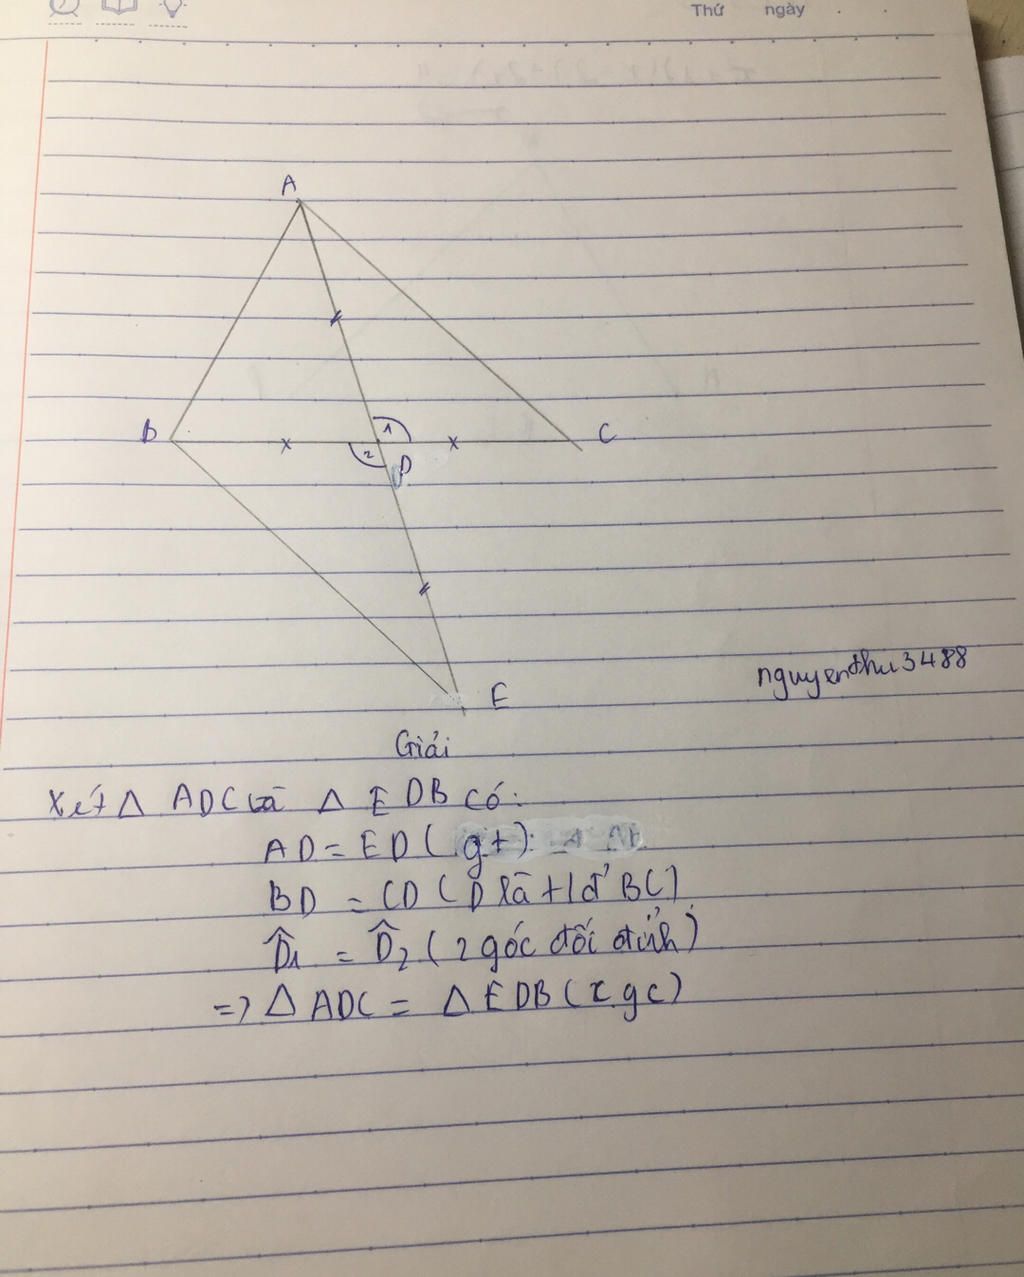 Thứ ngày
A
B
C
1
2
D
E
nguyenthu3488
Giải
Xét Δ ADC và Δ EDB có:
AD = ED ( gt)
BD = CD (D là tđ' BC)
D̂1 = D̂2 (2 góc đối đỉnh)
=> Δ ADC = Δ EDB (cgc)